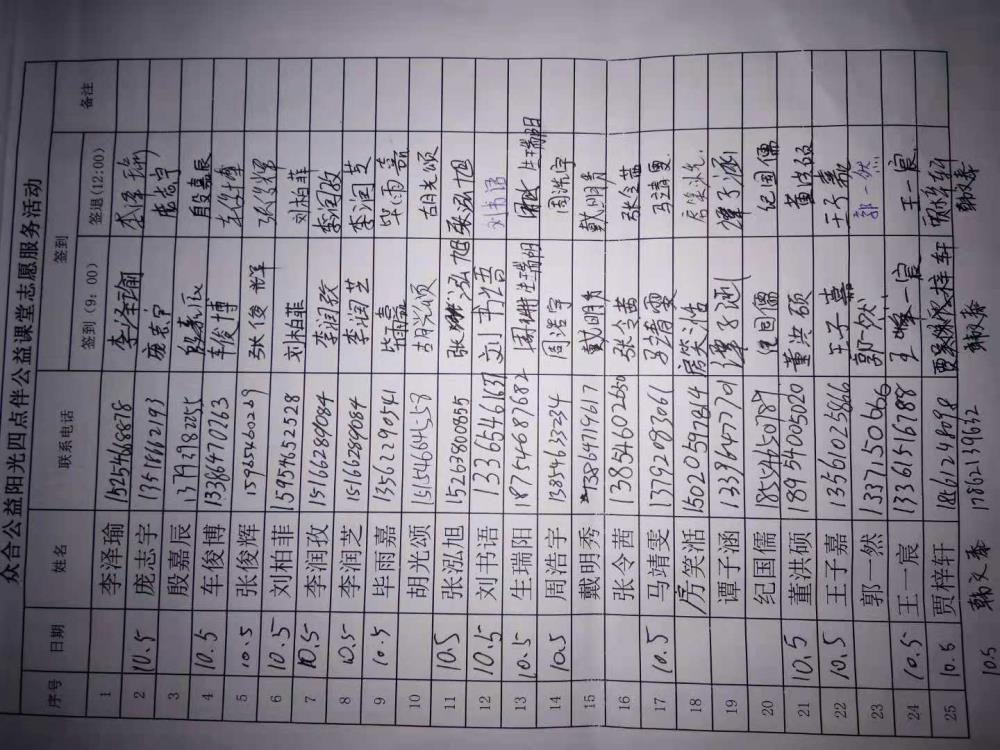 众合公益阳光四点伴公益课堂志愿服务活动
序号 日期 姓名 联系电话 签到 备注
签到(9:00) 签退(12:00)
1 李泽瑜 15254688878 李泽瑜
2 10.5 庞志宇 13518662193 庞志宇 庞志宇
3 殷嘉辰 殷嘉辰
4 10.5 车俊博 13386470263 车俊博 车俊博
5 10.5 张俊辉 15965460269 张俊辉 张俊辉
6 10.5 刘柏菲 15954652528 刘柏菲 刘柏菲
7 10.5 李润孜 15166289084 李润孜 李润孜
8 10.5 李润芝 15166289084 李润芝 李润芝
9 10.5 毕雨嘉 13562290541 毕雨嘉 毕雨嘉
10 胡光颂 15154604258 胡光颂 胡光颂
11 10.5 张泓旭 15263800555 张泓旭 张泓旭
12 10.5 刘书语 13365461637 刘书语 刘书语
13 10.5 生瑞阳 18754687682 生瑞阳 生瑞阳
14 10.5 周浩宇 13854633234 周浩宇 周浩宇
15 戴明秀 13864719617 戴明秀 戴明秀
16 张令茜 13854602650 张令茜 张令茜
17 10.5 马靖雯 13792093061 马靖雯 马靖雯
18 房笑湉 15020597814 房笑湉 房笑湉
19 谭子涵 13396477701 谭子涵 谭子涵
20 纪国儒 18546450789 纪国儒 纪国儒
21 10.5 董洪硕 18954005020 董洪硕 董洪硕
22 10.5 王子嘉 13561025866 王子嘉 王子嘉
23 郭一然 13371506606 郭一然 郭一然
24 10.5 王一宸 13361516188 王一宸 王一宸
25 10.5 贾梓轩 18661248098
10.5 17862139632